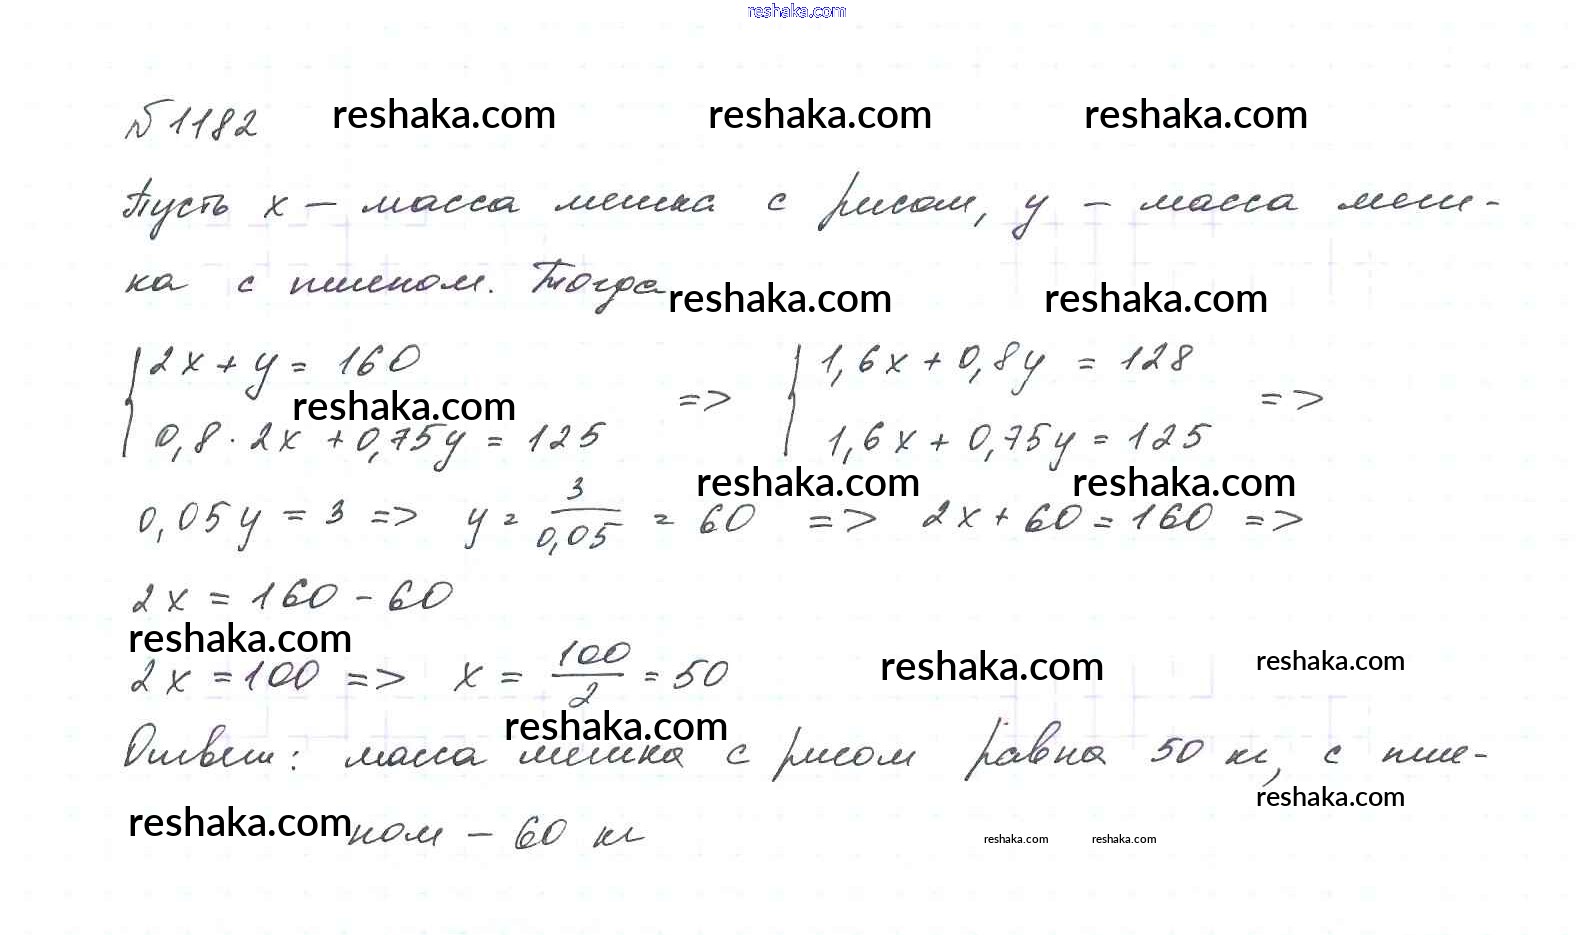 reshaka.com
№1182 reshaka.com reshaka.com reshaka.com
Пусть x – масса мешка с рисом, y – масса меш-
ка с пшеном. Тогда reshaka.com reshaka.com
{2x + y = 160 => {1,6x + 0,8y = 128 =>
reshaka.com
0,8 · 2x + 0,75y = 125 1,6x + 0,75y = 125
reshaka.com reshaka.com
0,05y = 3 => y = 3/0,05 = 60 => 2x + 60 = 160 =>
2x = 160 - 60
reshaka.com reshaka.com reshaka.com
2x = 100 => x = 100/2 = 50
reshaka.com
Ответ: масса мешка с рисом равна 50 кг, с пше-
reshaka.com
reshaka.com ном – 60 кг reshaka.com reshaka.com